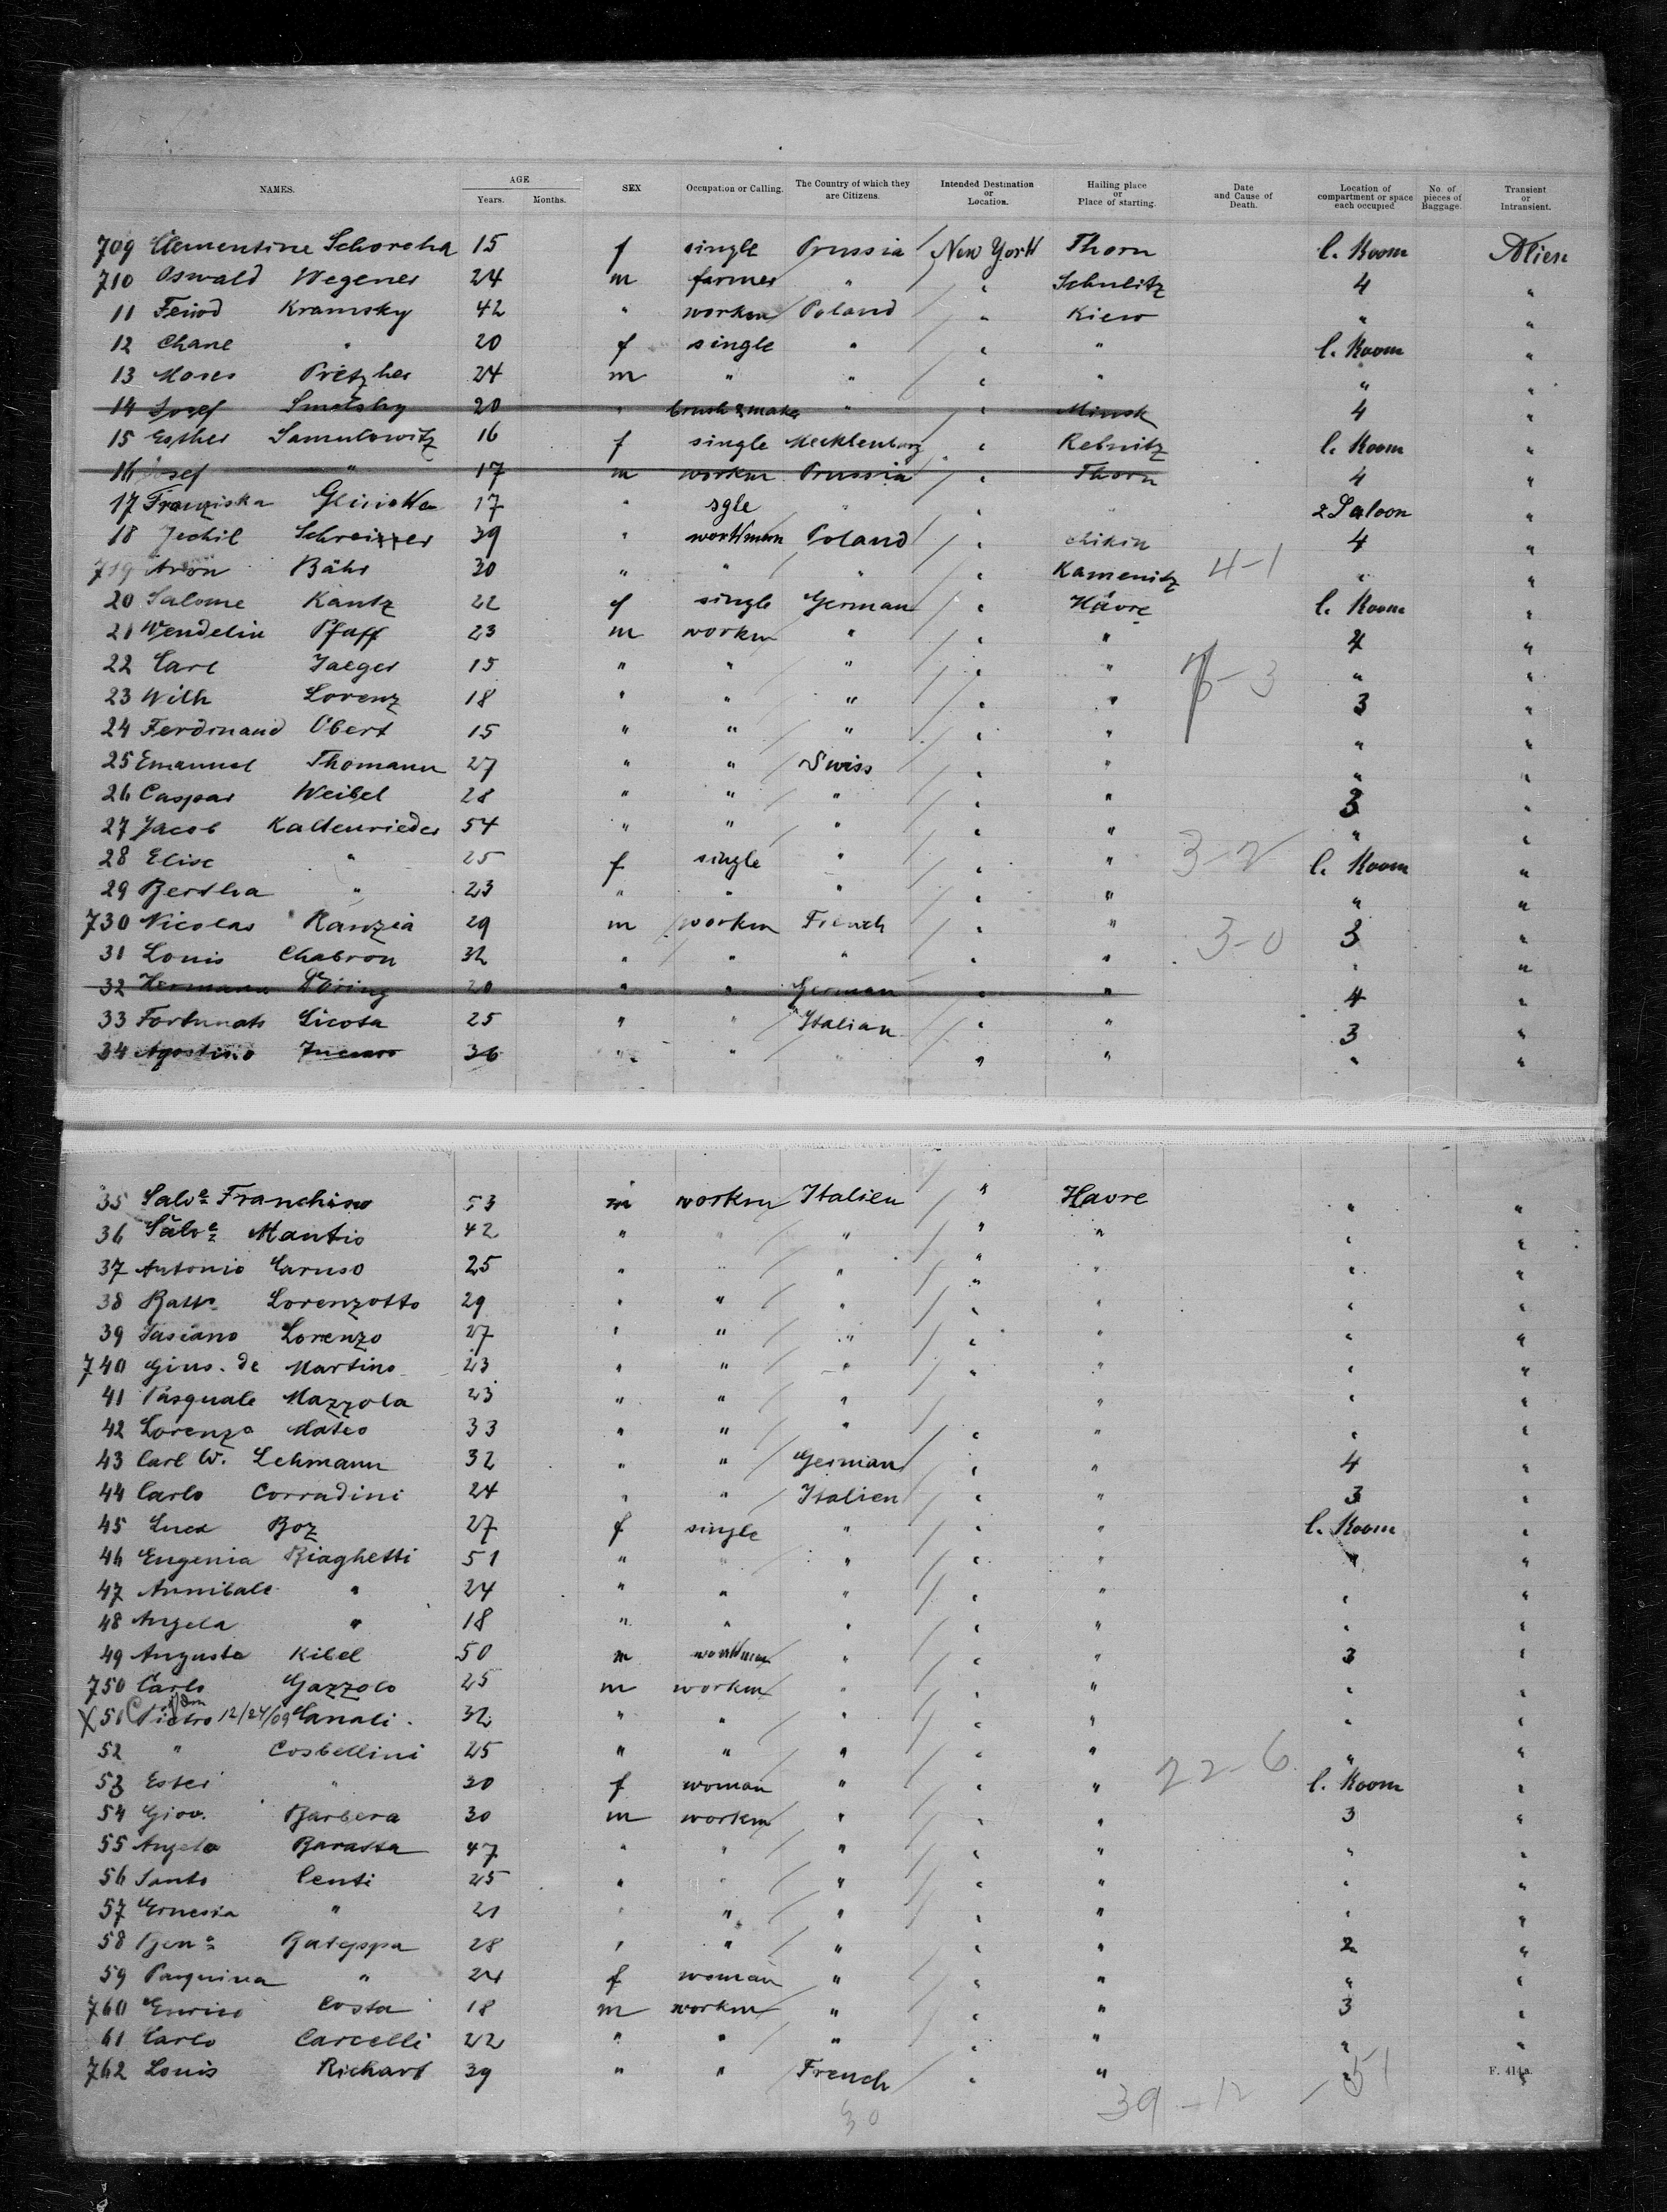 NAMES. AGE Years. Months. SEX Occupation or Calling. The Country of which they are Citizens. Intended Destination or Location. Hailing place or Place of starting. Date and Cause of Death. Location of compartment or space each occupied No. of pieces of Baggage. Transient or Intransient.
709 Clementine Schoreha 15 f single Prussia New York Thorn C. Room Alien
710 Oswald Wegener 24 m farmer " " Schulitz 4 "
11 Kramsky 42 " workm Poland " Kiew " "
12 Chane " 20 f single " " " C. Room "
13 Moses Pritzker 24 m " " " " " "
14 Josef Smolsky 20 " brushmaker " " Minsk 4 "
15 Esther Samulowitz 16 f single Mecklenburg " Rebnitz C. Room "
16 Josef " 17 m workm Prussia " Thorn 4 "
17 Franziska 17 " sgle " " " 2 Saloon "
18 Jechil 39 " workman Poland " 4 "
719 Aron Bähr 30 " " " " Kamenitz 4-1 " "
20 Salome Kautz 22 f single German " Havre C. Room "
21 Wendelin Pfaff 23 m workm " " " 4 "
22 Carl Jaeger 15 " " " " " " "
23 Wilh Lorenz 18 " " " " " 3 "
24 Ferdinand Obert 15 " " " " " " "
25 Emanuel Thomann 27 " " Swiss " " " "
26 Caspar Weibel 28 " " " " " 3 "
27 Jacob Kaltenrieder 54 " " " " " " "
28 Elise " 25 f single " " " 3-2 C. Room "
29 Bertha " 23 " " " " " " "
730 Nicolas Ranzia 29 m workm French " " 3-0 3 "
31 Louis Chabron 32 " " " " " " "
32 Hermann Döring 20 " " German " " 4 "
33 Fortunato Licota 25 " " Italian " " 3 "
34 Agostino 36 " " " " " " "
35 Salve Franchino 53 m workm Italien " Havre " "
36 Salve Mantio 42 " " " " " " "
37 Antonio Caruso 25 " " " " " " "
38 Batta Lorenzotto 29 " " " " " " "
39 Tasiano Lorenzo 27 " " " " " " "
740 Gius. de Martino 23 " " " " " " "
41 Pasquale Mazzola 23 " " " " " "
42 Lorenzo Mateo 33 " " " " " " "
43 Carl W. Lehmann 32 " " German " " 4 "
44 Carlo Corradini 24 " " Italien " " 3 "
45 Luca Boz 27 f single " " " C. Room "
46 Eugenia Biaghetti 51 " " " " " " "
47 Annibale " 24 " " " " " " "
48 Angela " 18 " " " " " " "
49 Augusta Kibel 50 m workman " " " 3 "
750 Carlo Gazzolo 25 m workm " " " " "
X 51 Pietro 12/24/09 Canali 32 " " " " " " "
52 " Cosbellini 25 " " " " " " "
53 Ester " 30 f woman " " " 22-6 C. Room "
54 Giov. Barbera 30 m workm " " " 3 "
55 Angelo Baratta 47 " " " " " " "
56 Santo Centi 25 " " " " " " "
57 Ernesia " 21 " " " " " " "
58 Bene Bateppa 28 " " " " " 2 "
59 Pasquina " 24 f woman " " " " "
760 Enrico Costa 18 m workm " " " 3 "
61 Carlo Carcelli 22 " " " " " " "
762 Louis Richart 39 " " French " " " "
F. 414a.
30 39-12 - 51